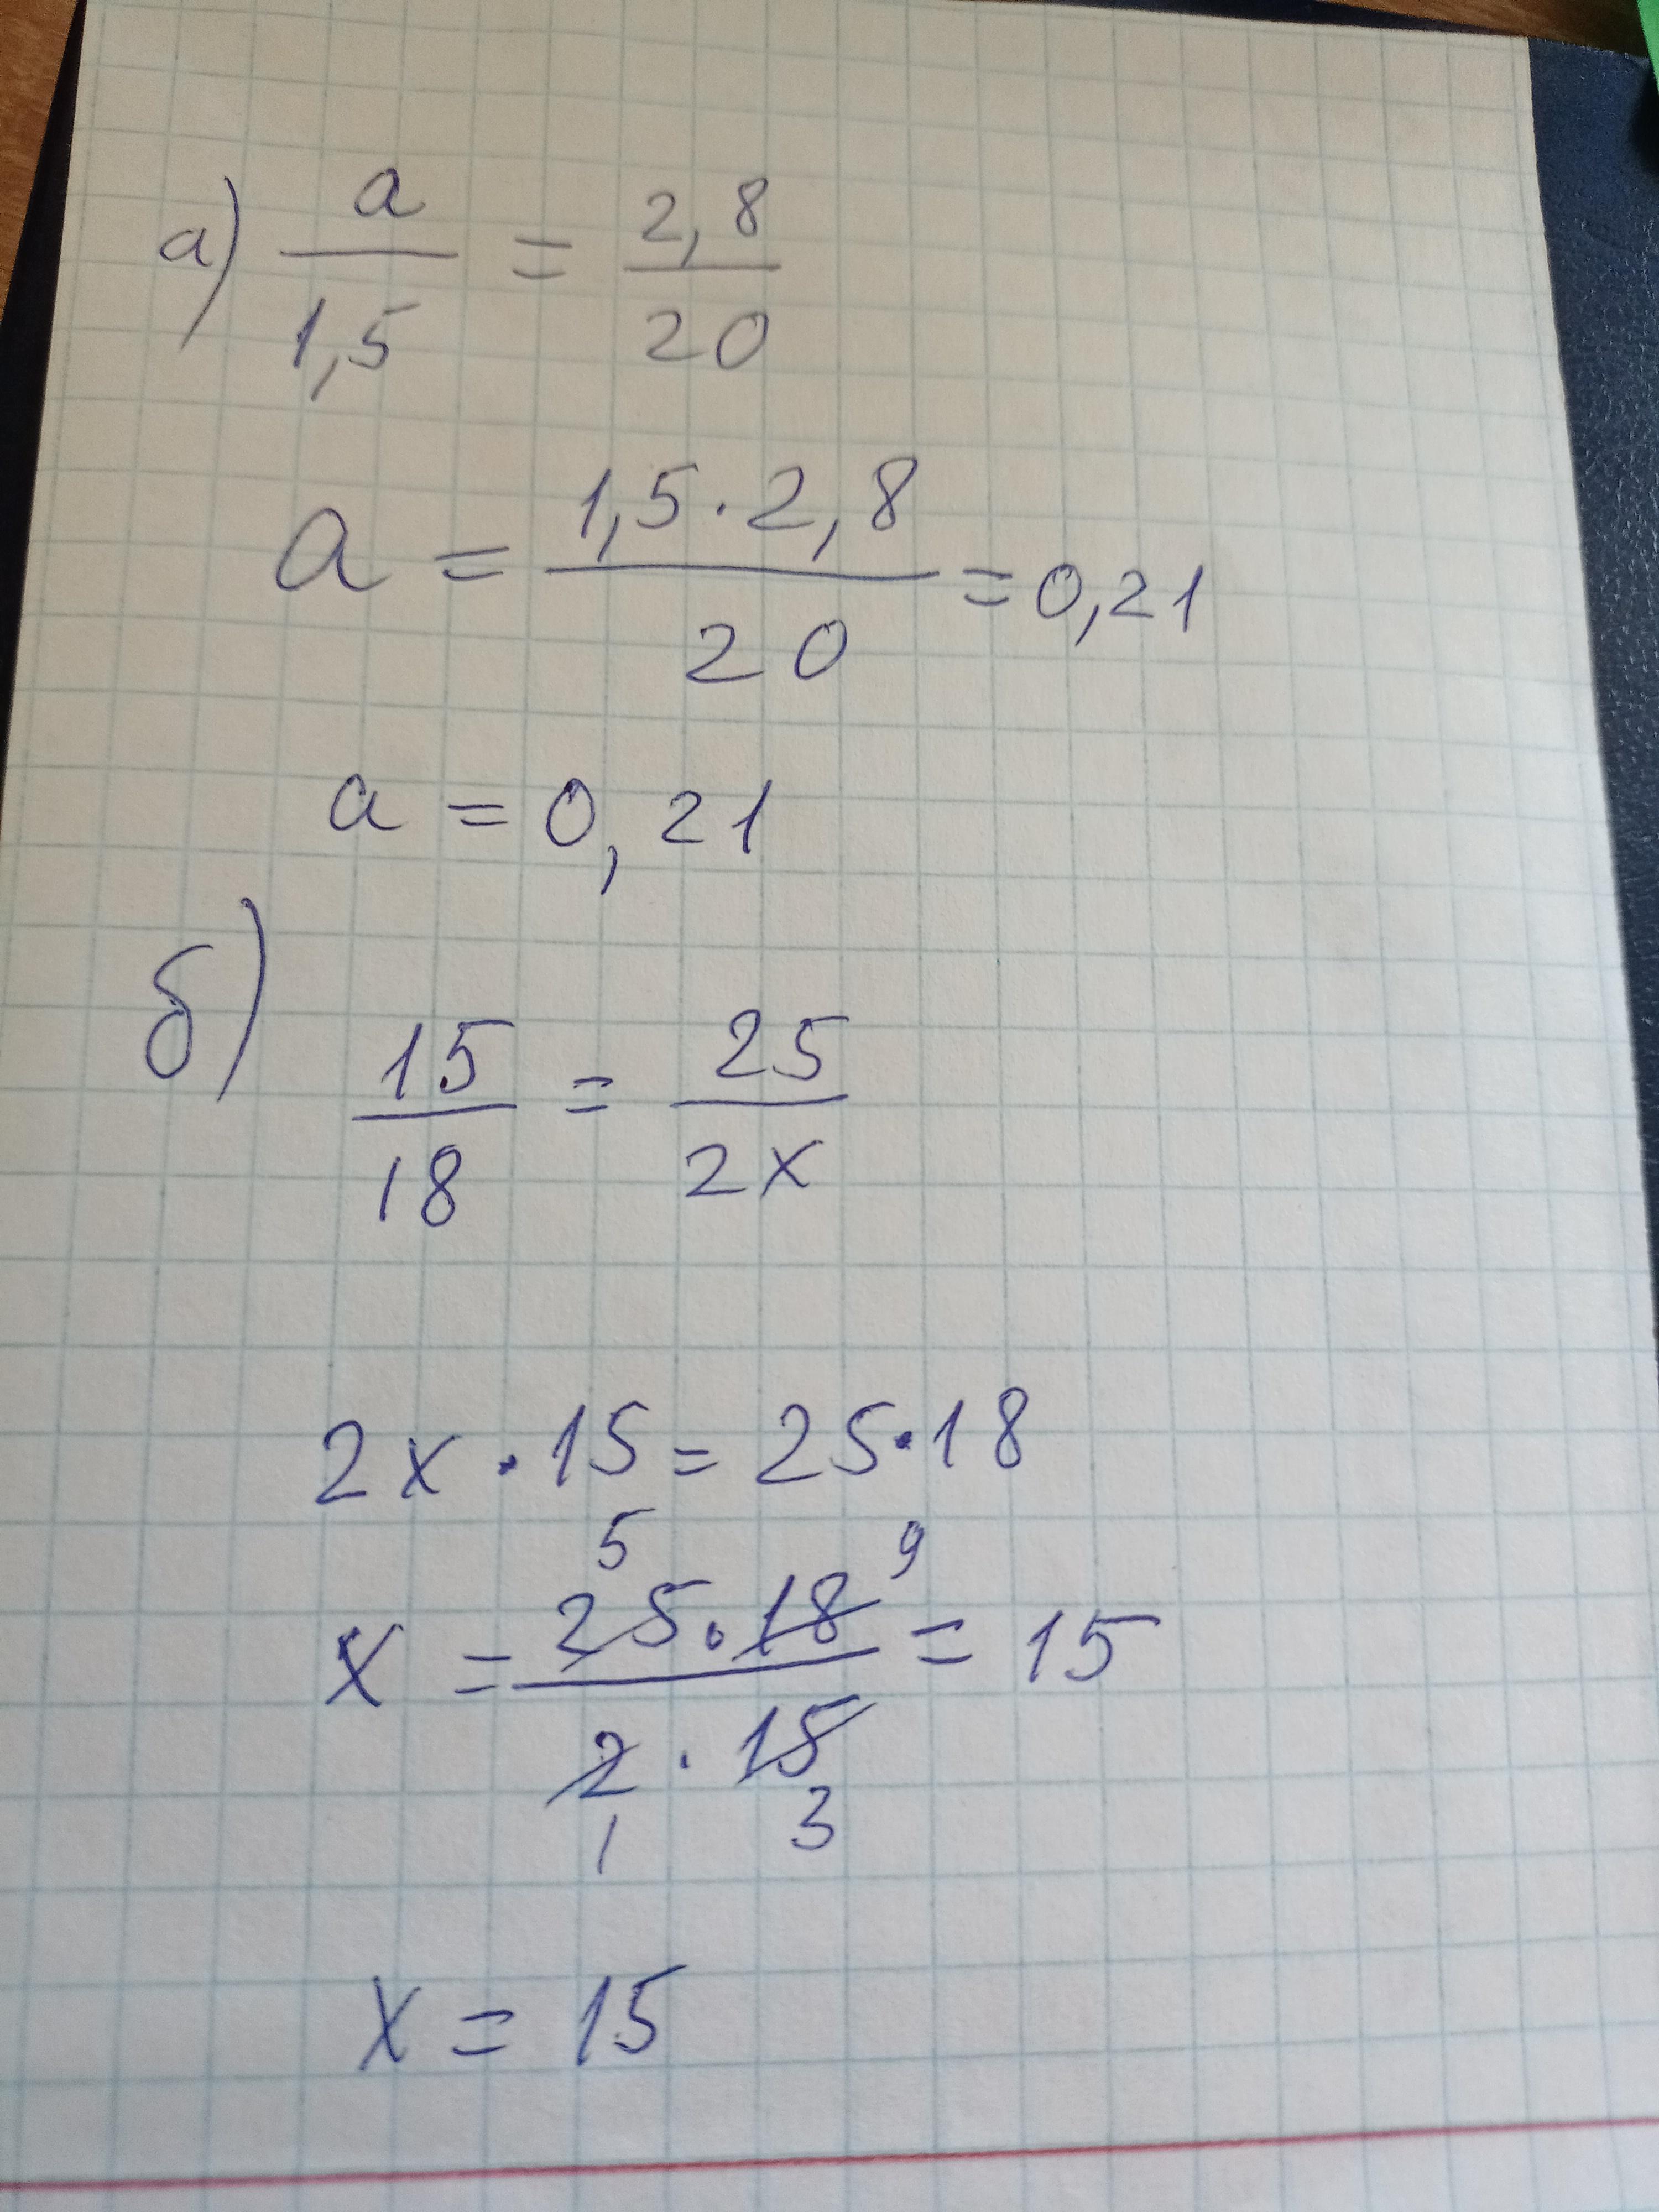 а) a/1,5 = 2,8/20
a = 1,5·2,8/20 = 0,21
a = 0,21
б) 15/18 = 25/2x
2x · 15 = 25·18
5 9
x = 25·18/2·15 = 15
1 3
x = 15